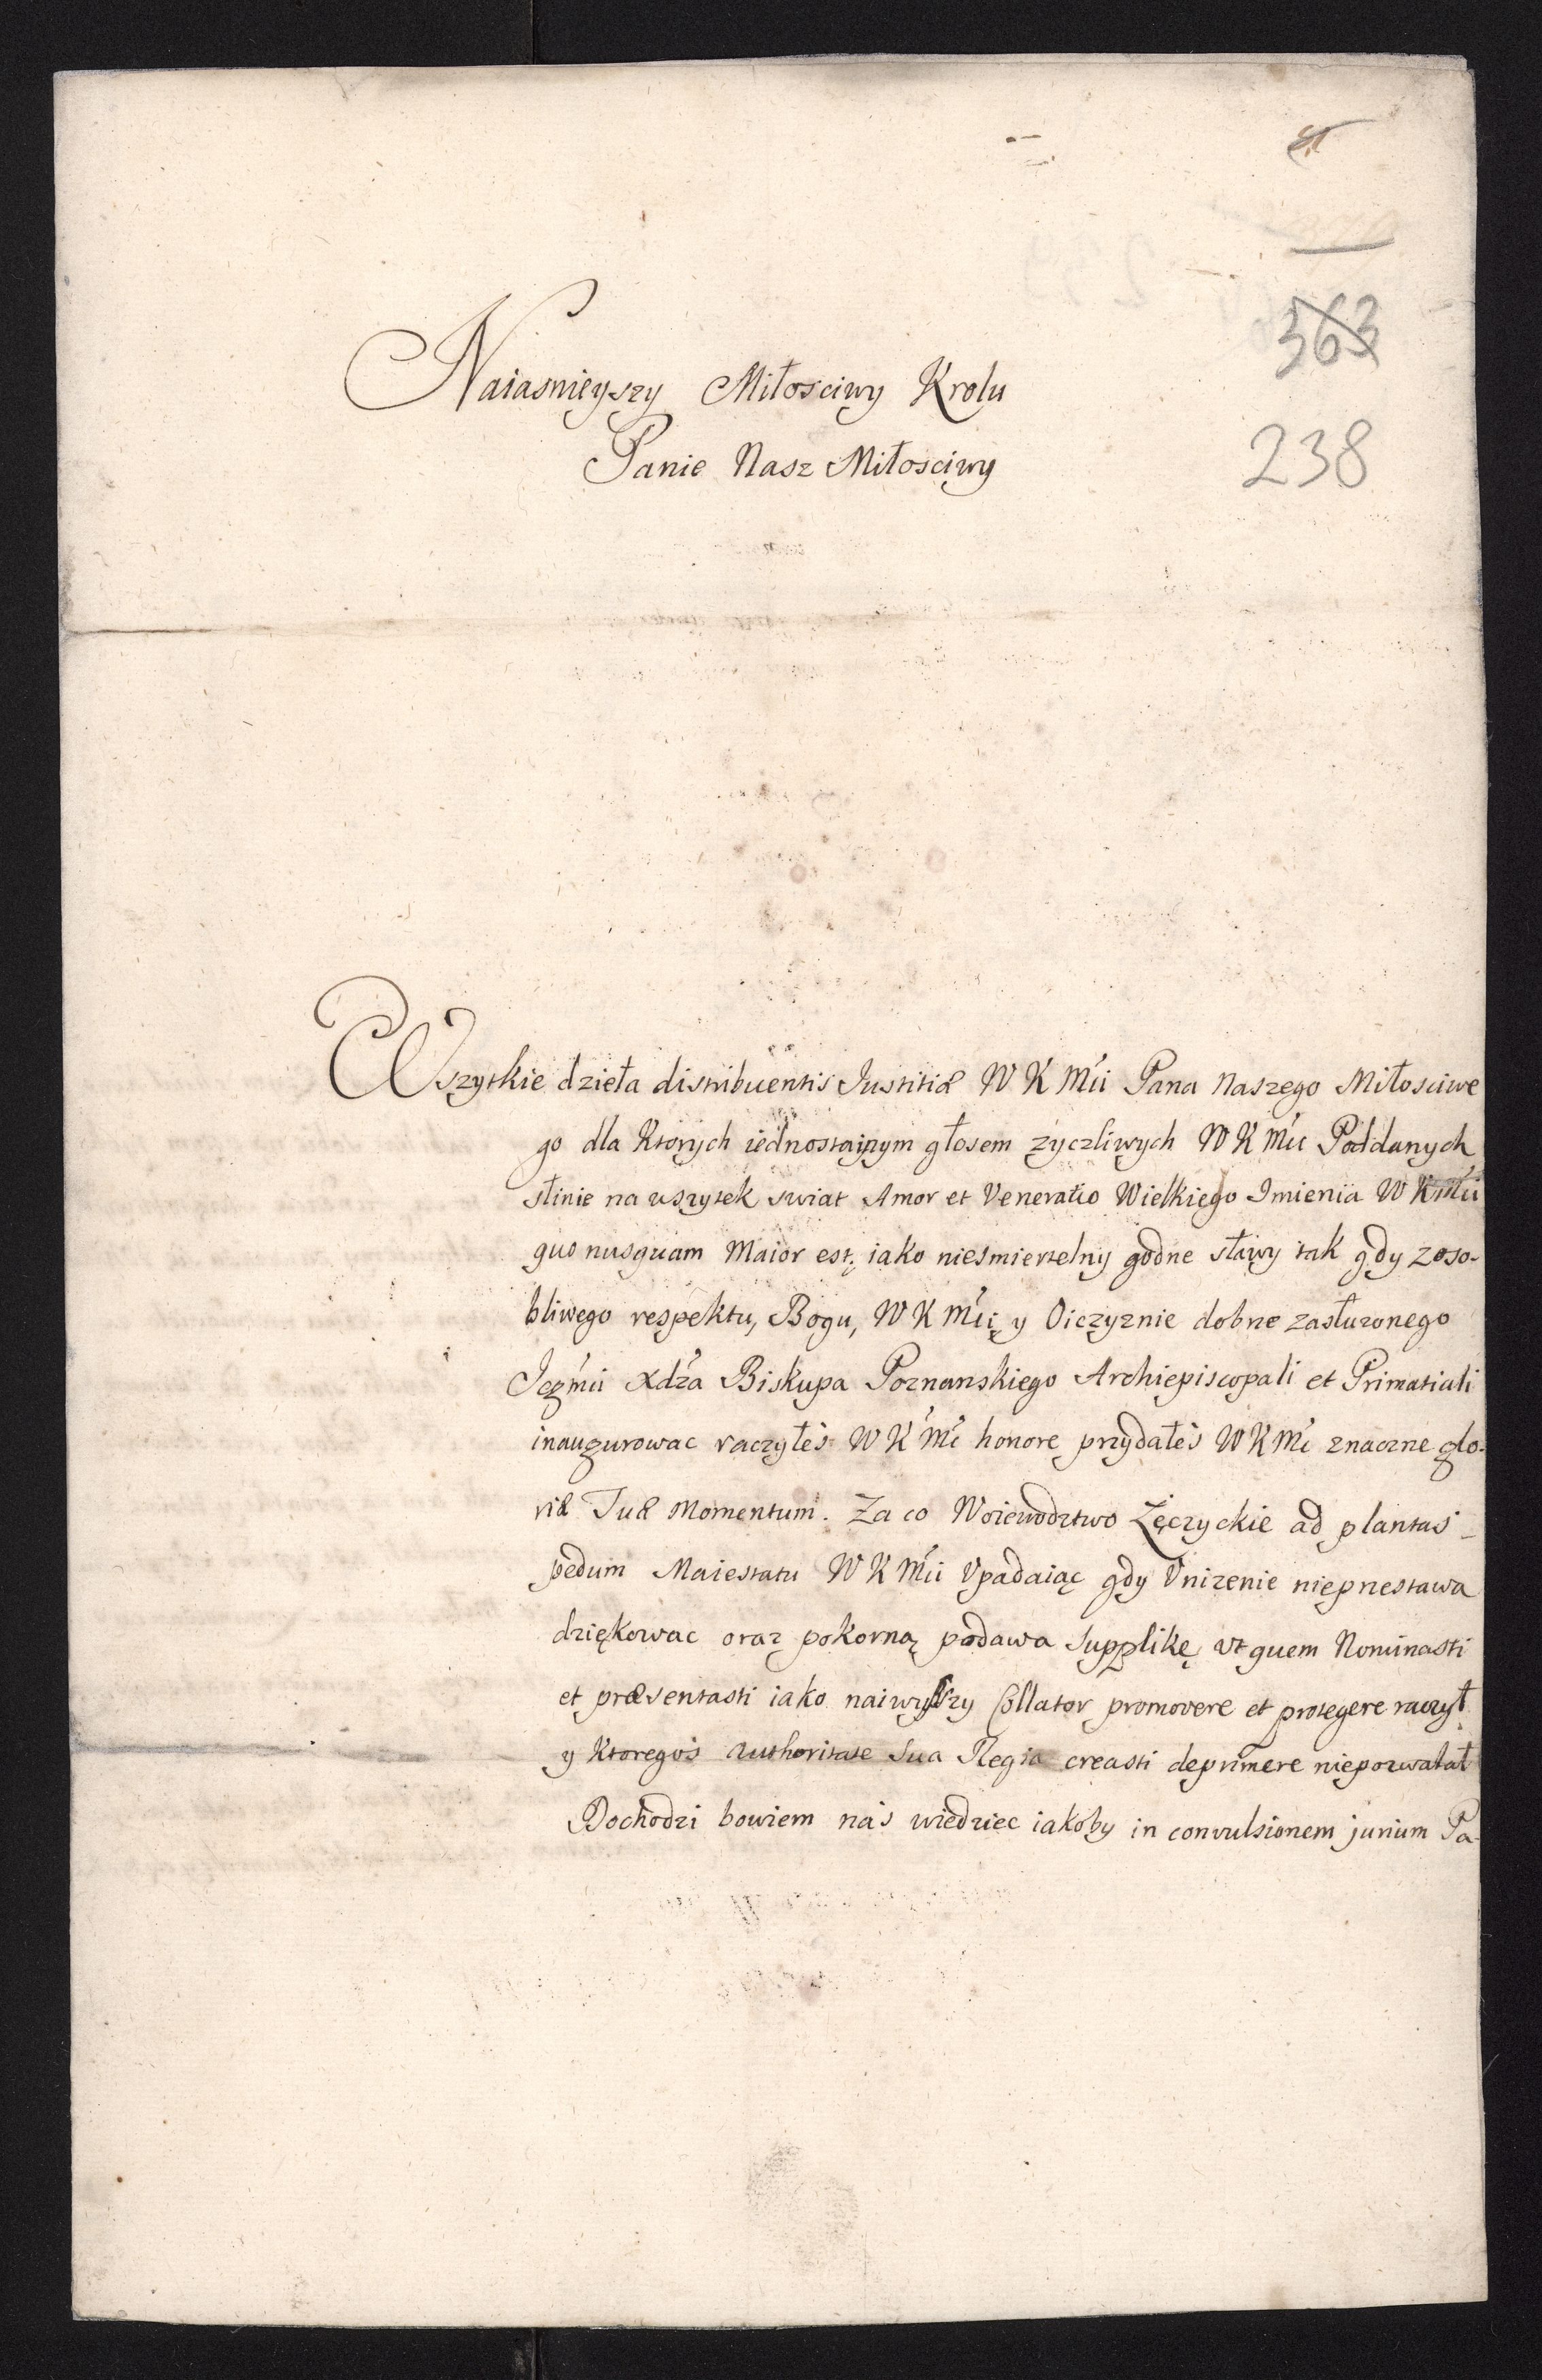 363
238
Naiasnieyszy Miłosciwy Krolu
Panie Nasz Miłosciwy
Wszytkie dzieła distribuentis Justitiæ W K Mći Pana Naszego Miłosciwe
go dla Ktorych iednostaynym głosem zyczliwych W K Mći Poddanych
słinie na wszytek swiat Amor et Veneratio Wielkiego Imienia W K Mći
quo nusquam Maior est, iako niesmiertelny godne sławy tak gdy zoso-
bliwego respektu, Bogu, W K Mći, y Oiczyznie dobrze zasłuzonego
Jegmći xdza Biskupa Poznanskiego Archiepiscopali et Primatiali
inaugurowac raczyłeś W K Mć honore przydałeś W K Mć znaczne glo-
riæ Tuæ Momentum. Za co Woiewodztwo Łęczyckie ad plantas
pedum Maiestatu W K Mći Vpadaiąc gdy Vnizenie nieprzestawa
dziękowac oraz pokorną podawa supplikę vt quem Nominasti
et præsentasti iako naiwyszszy Collator promovere et protegere raczył
y Ktoregoś authoritate sua Regia creasti deprimere niepozwalał
Dochodzi bowiem naś wiedziec iakoby in convulsionem jurium Pa-